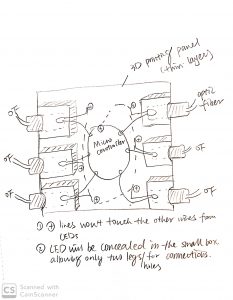 3D printing panel
(thin layer)
optic
fiber
OF
OF
OF
OF
OF
Micro
controller
+
+
+
+
-
① ⊕ lines won't touch the other wires from
LEDs
② LED will be concealed in the small box,
allowing only two legs for connections.
holes
CS
Scanned with
CamScanner